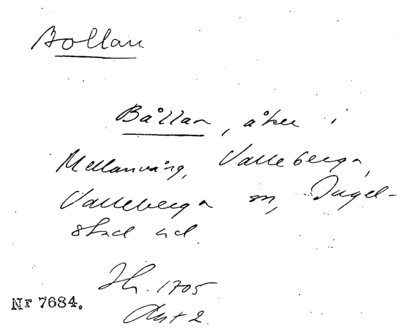 Bollan
Bållan, åker i
Mellanvång, Valleberga,
Valleberga sn, Ingel-
stad hd.
Hr. 1705
Akt 2.
NF 7684.